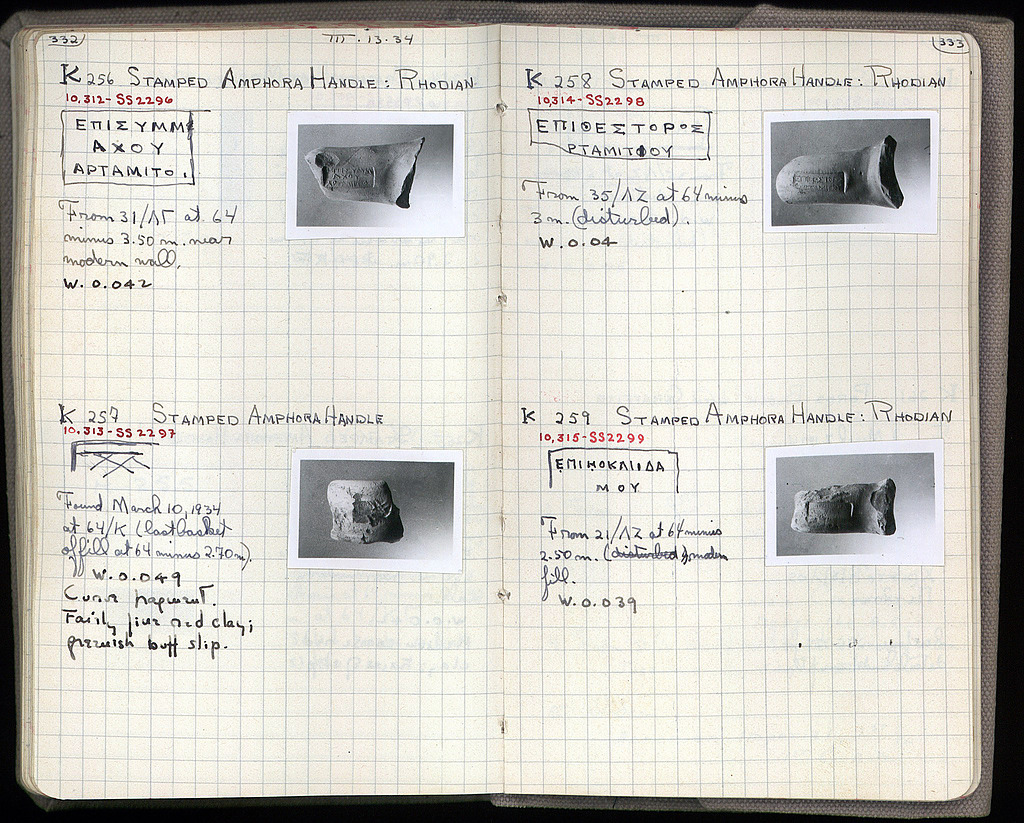 332
III.13.34
K 256 STAMPED AMPHORA HANDLE: RHODIAN
10,312-SS2296
ΕΠΙΣΥΜΜ
ΑΧΟΥ
ΑΡΤΑΜΙΤΟ
From 31/ΛΓ at 64
minus 3.50 m. near
modern wall.
W. 0.042
K 257 STAMPED AMPHORA HANDLE
10,313-SS2297
Found March 10, 1934
at 64/K (last basket
of fill at 64 minus 2.70 m).
W. 0.049
Curve fragment.
Fairly fine red clay;
greenish buff slip.
333
K 258 STAMPED AMPHORA HANDLE: RHODIAN
10,314-SS2298
ΕΠΙΘΕΣΤΟΡΟΣ
ΡΤΑΜΙΤΙΟΥ
From 35/ΛΖ at 64 minus
3 m. (disturbed).
W. 0.04
K 259 STAMPED AMPHORA HANDLE: RHODIAN
10,315-SS2299
ΕΠΙΝΟΚΛΙΟΔΑ
ΜΟΥ
From 21/ΛΖ at 64 minus
2.50 m. (disturbed) modern
fill.
W. 0.039